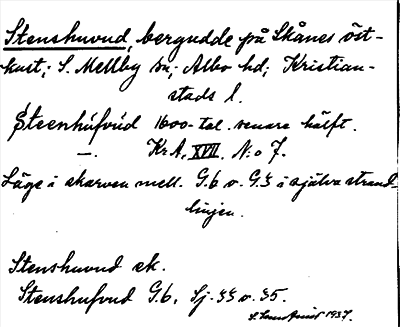 Stenshuvud, bergudde på Skånes öst-
kust; S. Mellby sn; Albo hd; Kristian-
stads l.
Steenhúfvúd 1600-tal. senare hälft.
—. Kr.A. XVII. N:o 7.
Läge i skarven mell. G.b o. G.3 i själva strand-
linjen.
Stenshuvud sk.
Stenshufvud G.b. Sj. 33 o. 35.
1937.